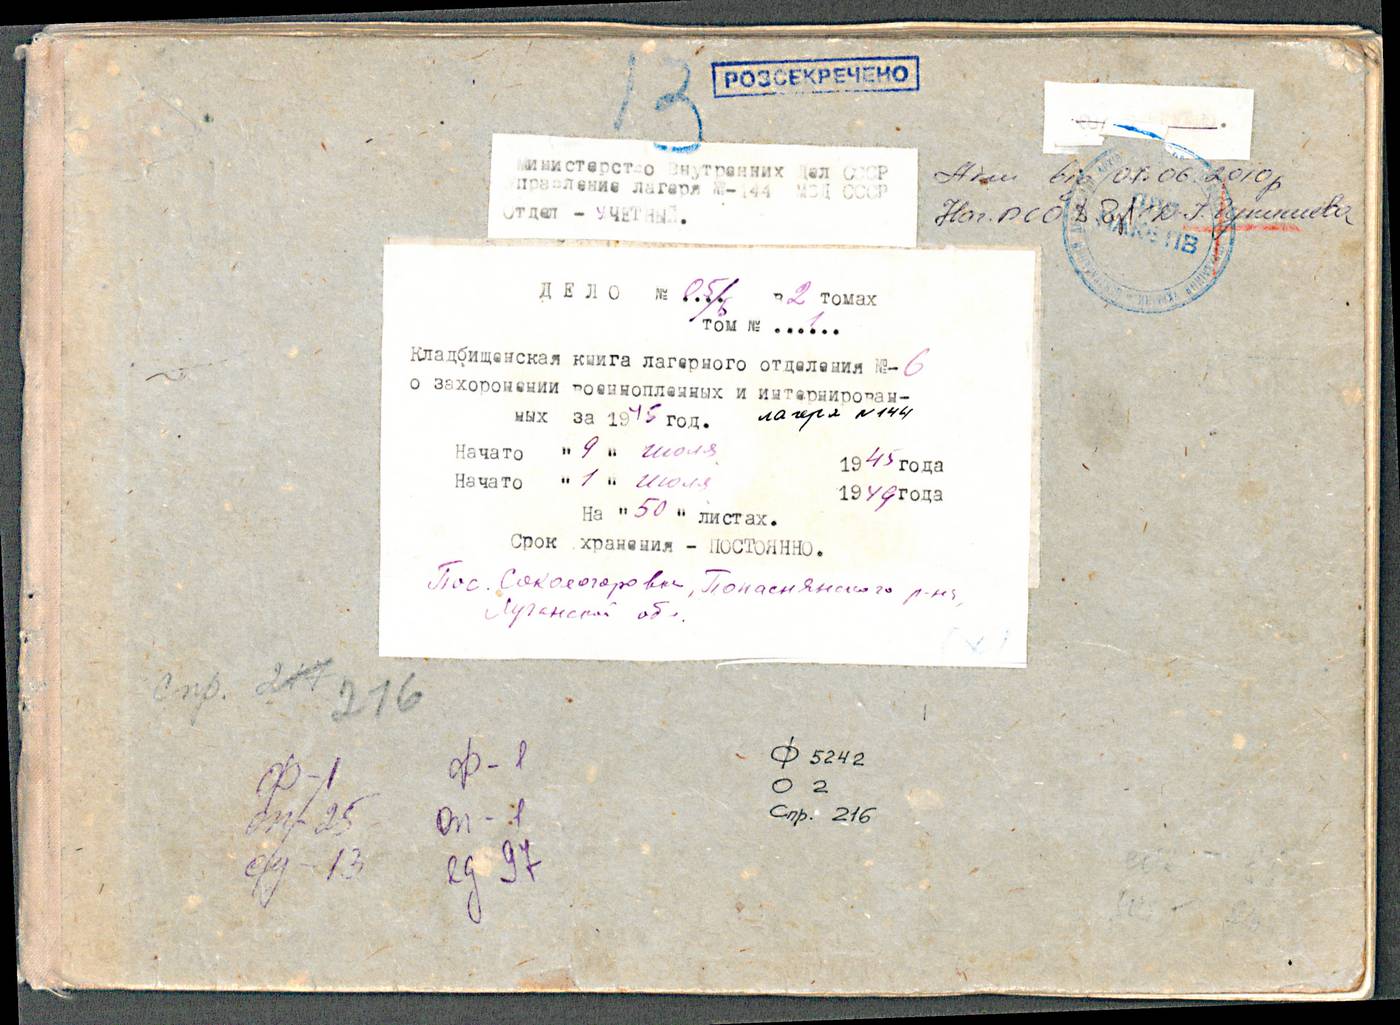 13
РОЗСЕКРЕЧЕНО
Министерство Внутренних Дел СССР
Управление лагеря №-144 МВД СССР
Отдел - УЧЕТНЫЙ.
Акт від 01.06.2010р
ДЕЛО № 05/6 в 2 томах
том № ...1...
Кладбищенская книга лагерного отделения №-6
о захоронении военнопленных и интернирован-
ных за 1945 год. лагеря №144
Начато "9" июля 1945 года
Начато "1" июля 1949 года
На "50" листах.
Срок хранения - ПОСТОЯННО.
Пос. Сокологоровка, Попаснянского р-на,
Луганской обл.
Спр. 217 216
ф-1
оп-25
ед-13
ф-1
оп-1
ед 97
Ф 5242
О 2
Спр. 216